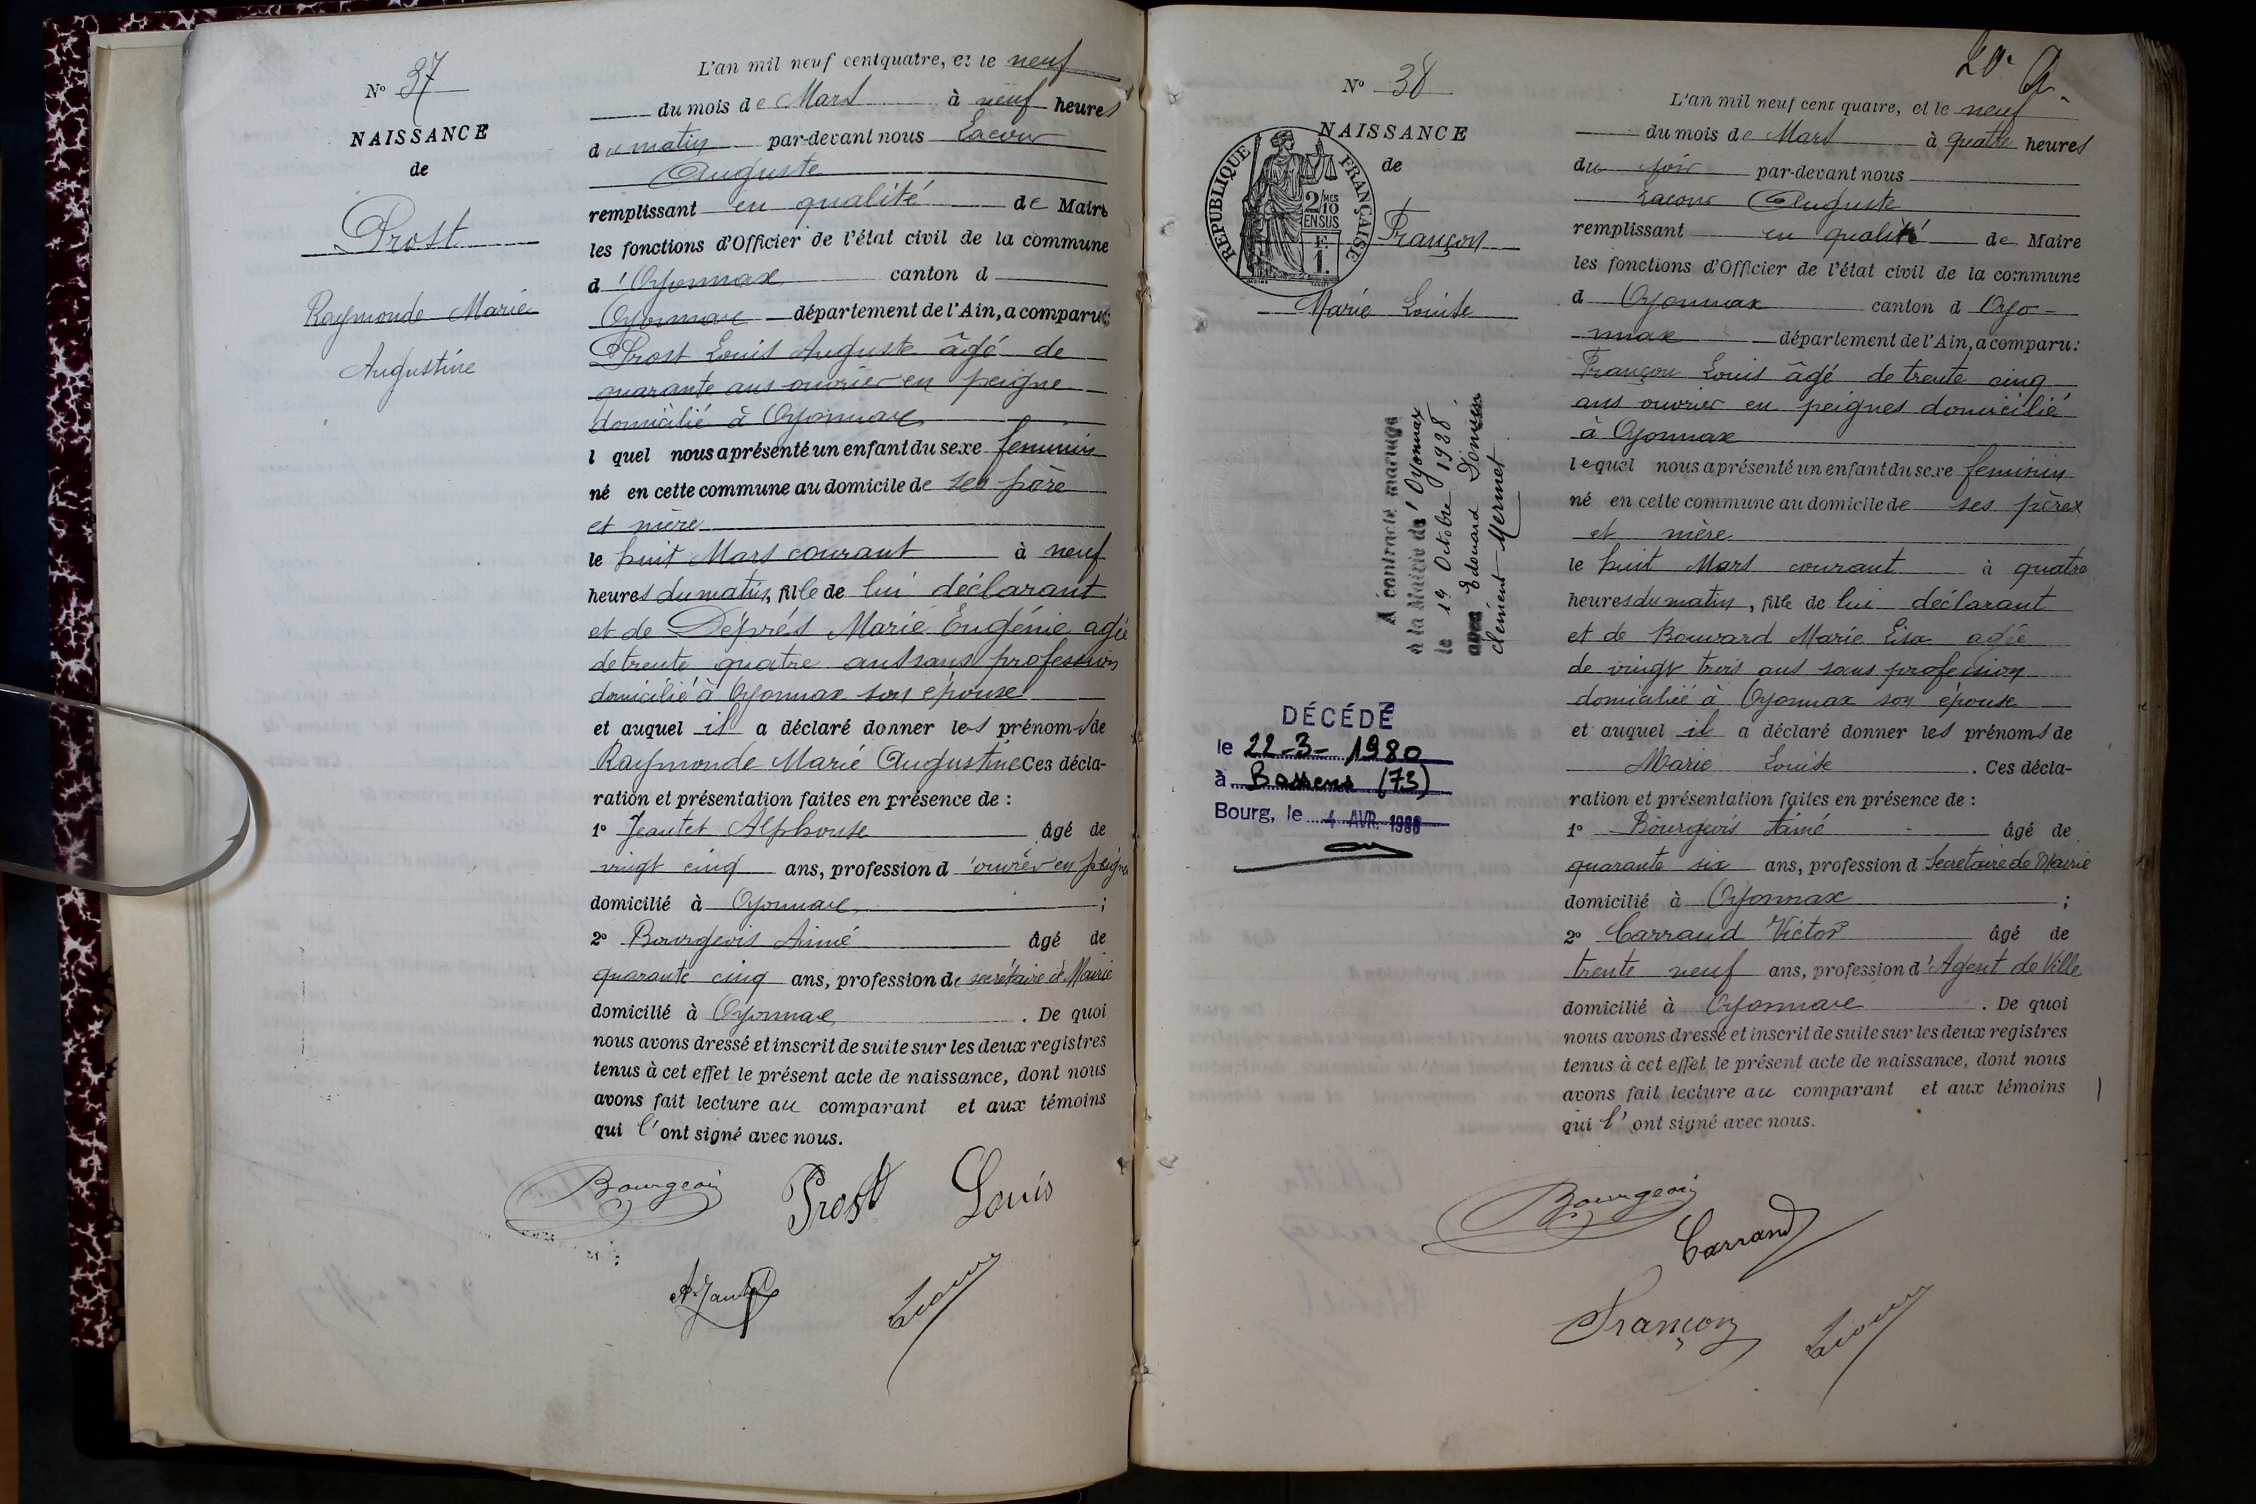 N° 37
NAISSANCE
de
Prost
Raymonde Marie
Augustine
L'an mil neuf cent quatre, et le neuf
du mois de Mars à neuf heures
du matin par-devant nous Lacour
Auguste
remplissant en qualité de Maire
les fonctions d'Officier de l'état civil de la commune
d'Oyonnax canton d
Oyonnax département de l'Ain, a comparu:
Prost Louis Auguste âgé de
quarante ans ouvrier en peigne
domicilié à Oyonnax
l quel nous a présenté un enfant du sexe feminin
né en cette commune au domicile de ses père
et mère
le huit Mars courant à neuf
heures du matin, fille de lui déclarant
et de Déprés Marie Eugénie agée
de trente quatre ans sans profession
domicilié à Oyonnax son épouse
et auquel il a déclaré donner les prénoms de
Raymonde Marie Augustine Ces décla-
ration et présentation faites en présence de :
1° Jeantet Alphonse âgé de
vingt cinq ans, profession d'ouvrier en peigne
domicilié à Oyonnax ;
2° Bourgeois Aimé âgé de
quarante cinq ans, profession de secrétaire de Mairie
domicilié à Oyonnax . De quoi
nous avons dressé et inscrit de suite sur les deux registres
tenus à cet effet le présent acte de naissance, dont nous
avons fait lecture au comparant et aux témoins
qui l'ont signé avec nous.
Bourgeois Prost Louis
A. Jeantet Lacour
N° 38
NAISSANCE
de
REPUBLIQUE FRANÇAISE
2/10 MES
EN SUS
F.
1.
Françon
Marie Louise
A contracté mariage
à la Mairie d'Oyonnax
le 19 Octobre 1928
avec Edouard
Clément Mermet
DÉCÉDÉE
le 22-3-1980
à Bassens (73)
Bourg, le 4 AVR. 1980
20e
L'an mil neuf cent quatre, et le neuf
du mois de Mars à quatre heures
du soir par-devant nous
Lacour Auguste
remplissant en qualité de Maire
les fonctions d'Officier de l'état civil de la commune
d Oyonnax canton d Oyo-
nnax département de l'Ain, a comparu:
Françon Louis âgé de trente cinq
ans ouvrier en peignes domicilié
à Oyonnax
lequel nous a présenté un enfant du sexe feminin
né en cette commune au domicile de ses père
et mère
le huit Mars courant à quatre
heures du matin, fille de lui déclarant
et de Bouvard Marie Lisa agée
de vingt trois ans sans profession
domicilié à Oyonnax son épouse
et auquel il a déclaré donner les prénoms de
Marie Louise . Ces décla-
ration et présentation faites en présence de :
1° Bourgeois Aimé âgé de
quarante six ans, profession d Secrétaire de Mairie
domicilié à Oyonnax ;
2° Carraud Victor âgé de
trente neuf ans, profession d'Agent de Ville
domicilié à Oyonnax . De quoi
nous avons dressé et inscrit de suite sur les deux registres
tenus à cet effet le présent acte de naissance, dont nous
avons fait lecture au comparant et aux témoins
qui l'ont signé avec nous.
Bourgeois
Carraud
Françon Lacour